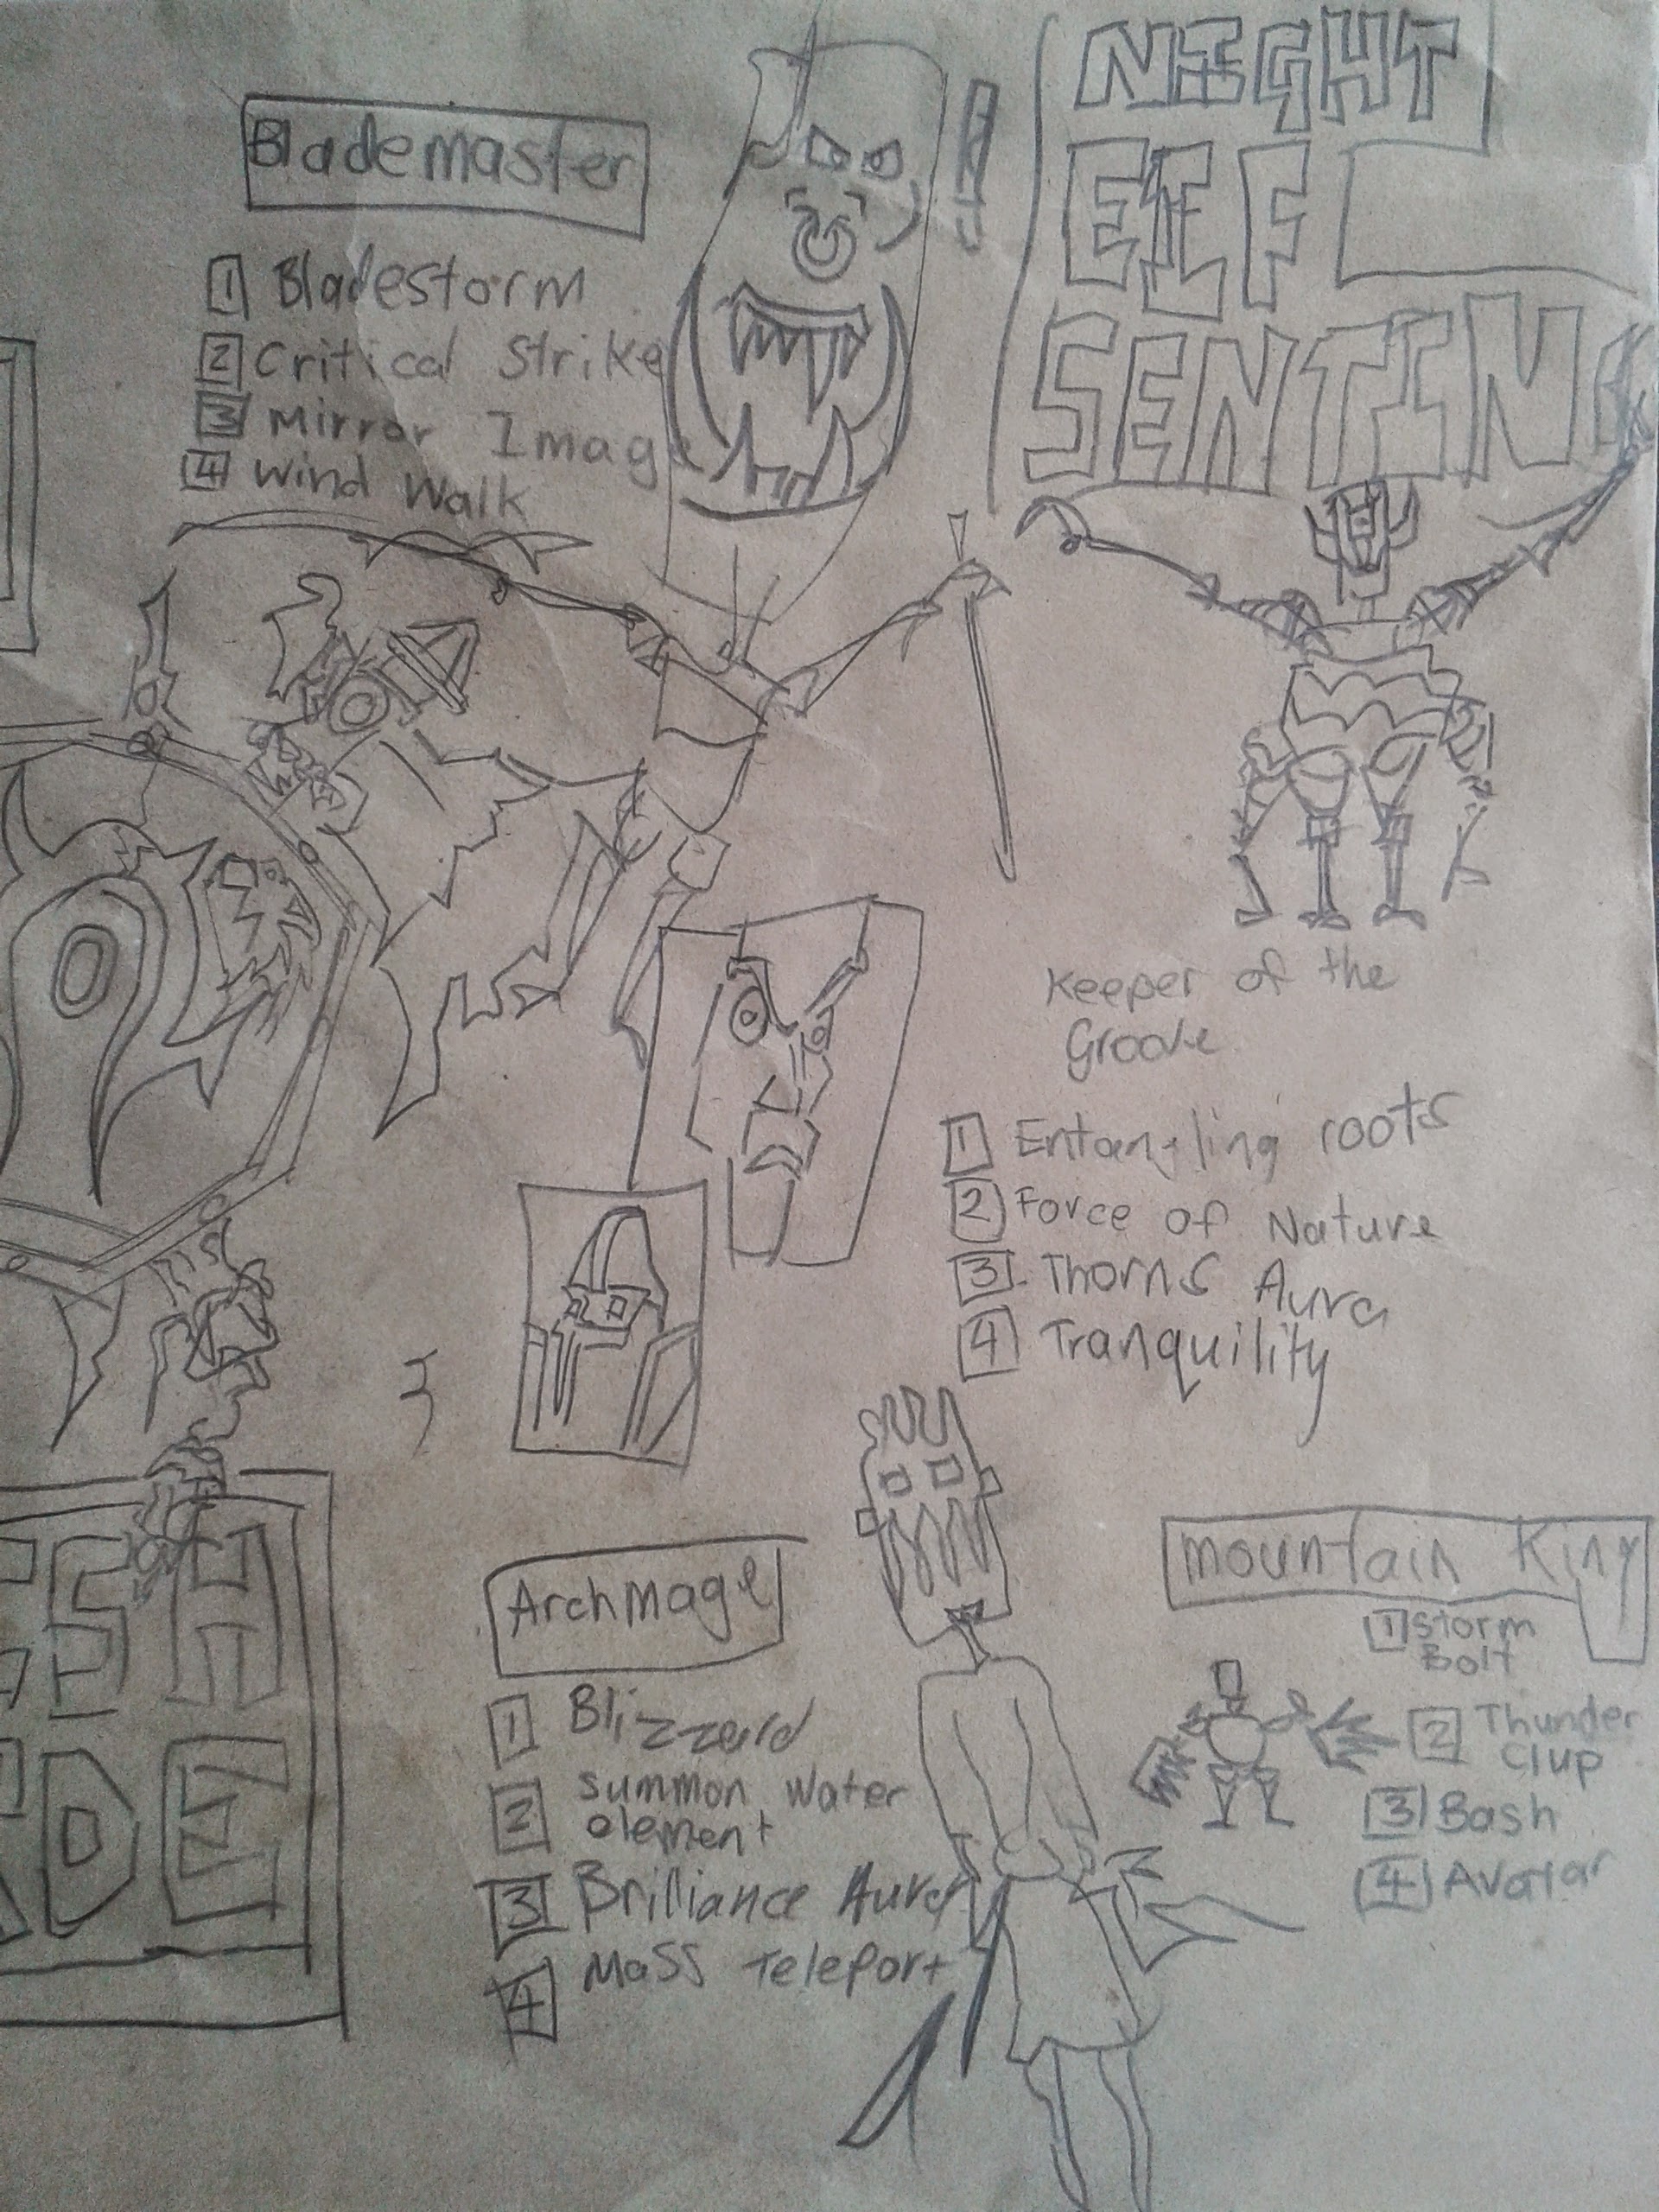 Blademaster
1 Bladestorm
2 Critical Strike
3 Mirror Image
4 Wind Walk
NIGHT
ELF
SENTIN
Keeper of the
Groove
1 Entangling roots
2 Force of Nature
3 Thorns Aura
4 Tranquility
ESH
DE
Archmage
1 Blizzard
2 summon water
element
3 Brilliance Aura
4 Mass Teleport
mountain King
1 Storm
Bolt
2 Thunder
Clup
3 Bash
4 Avatar